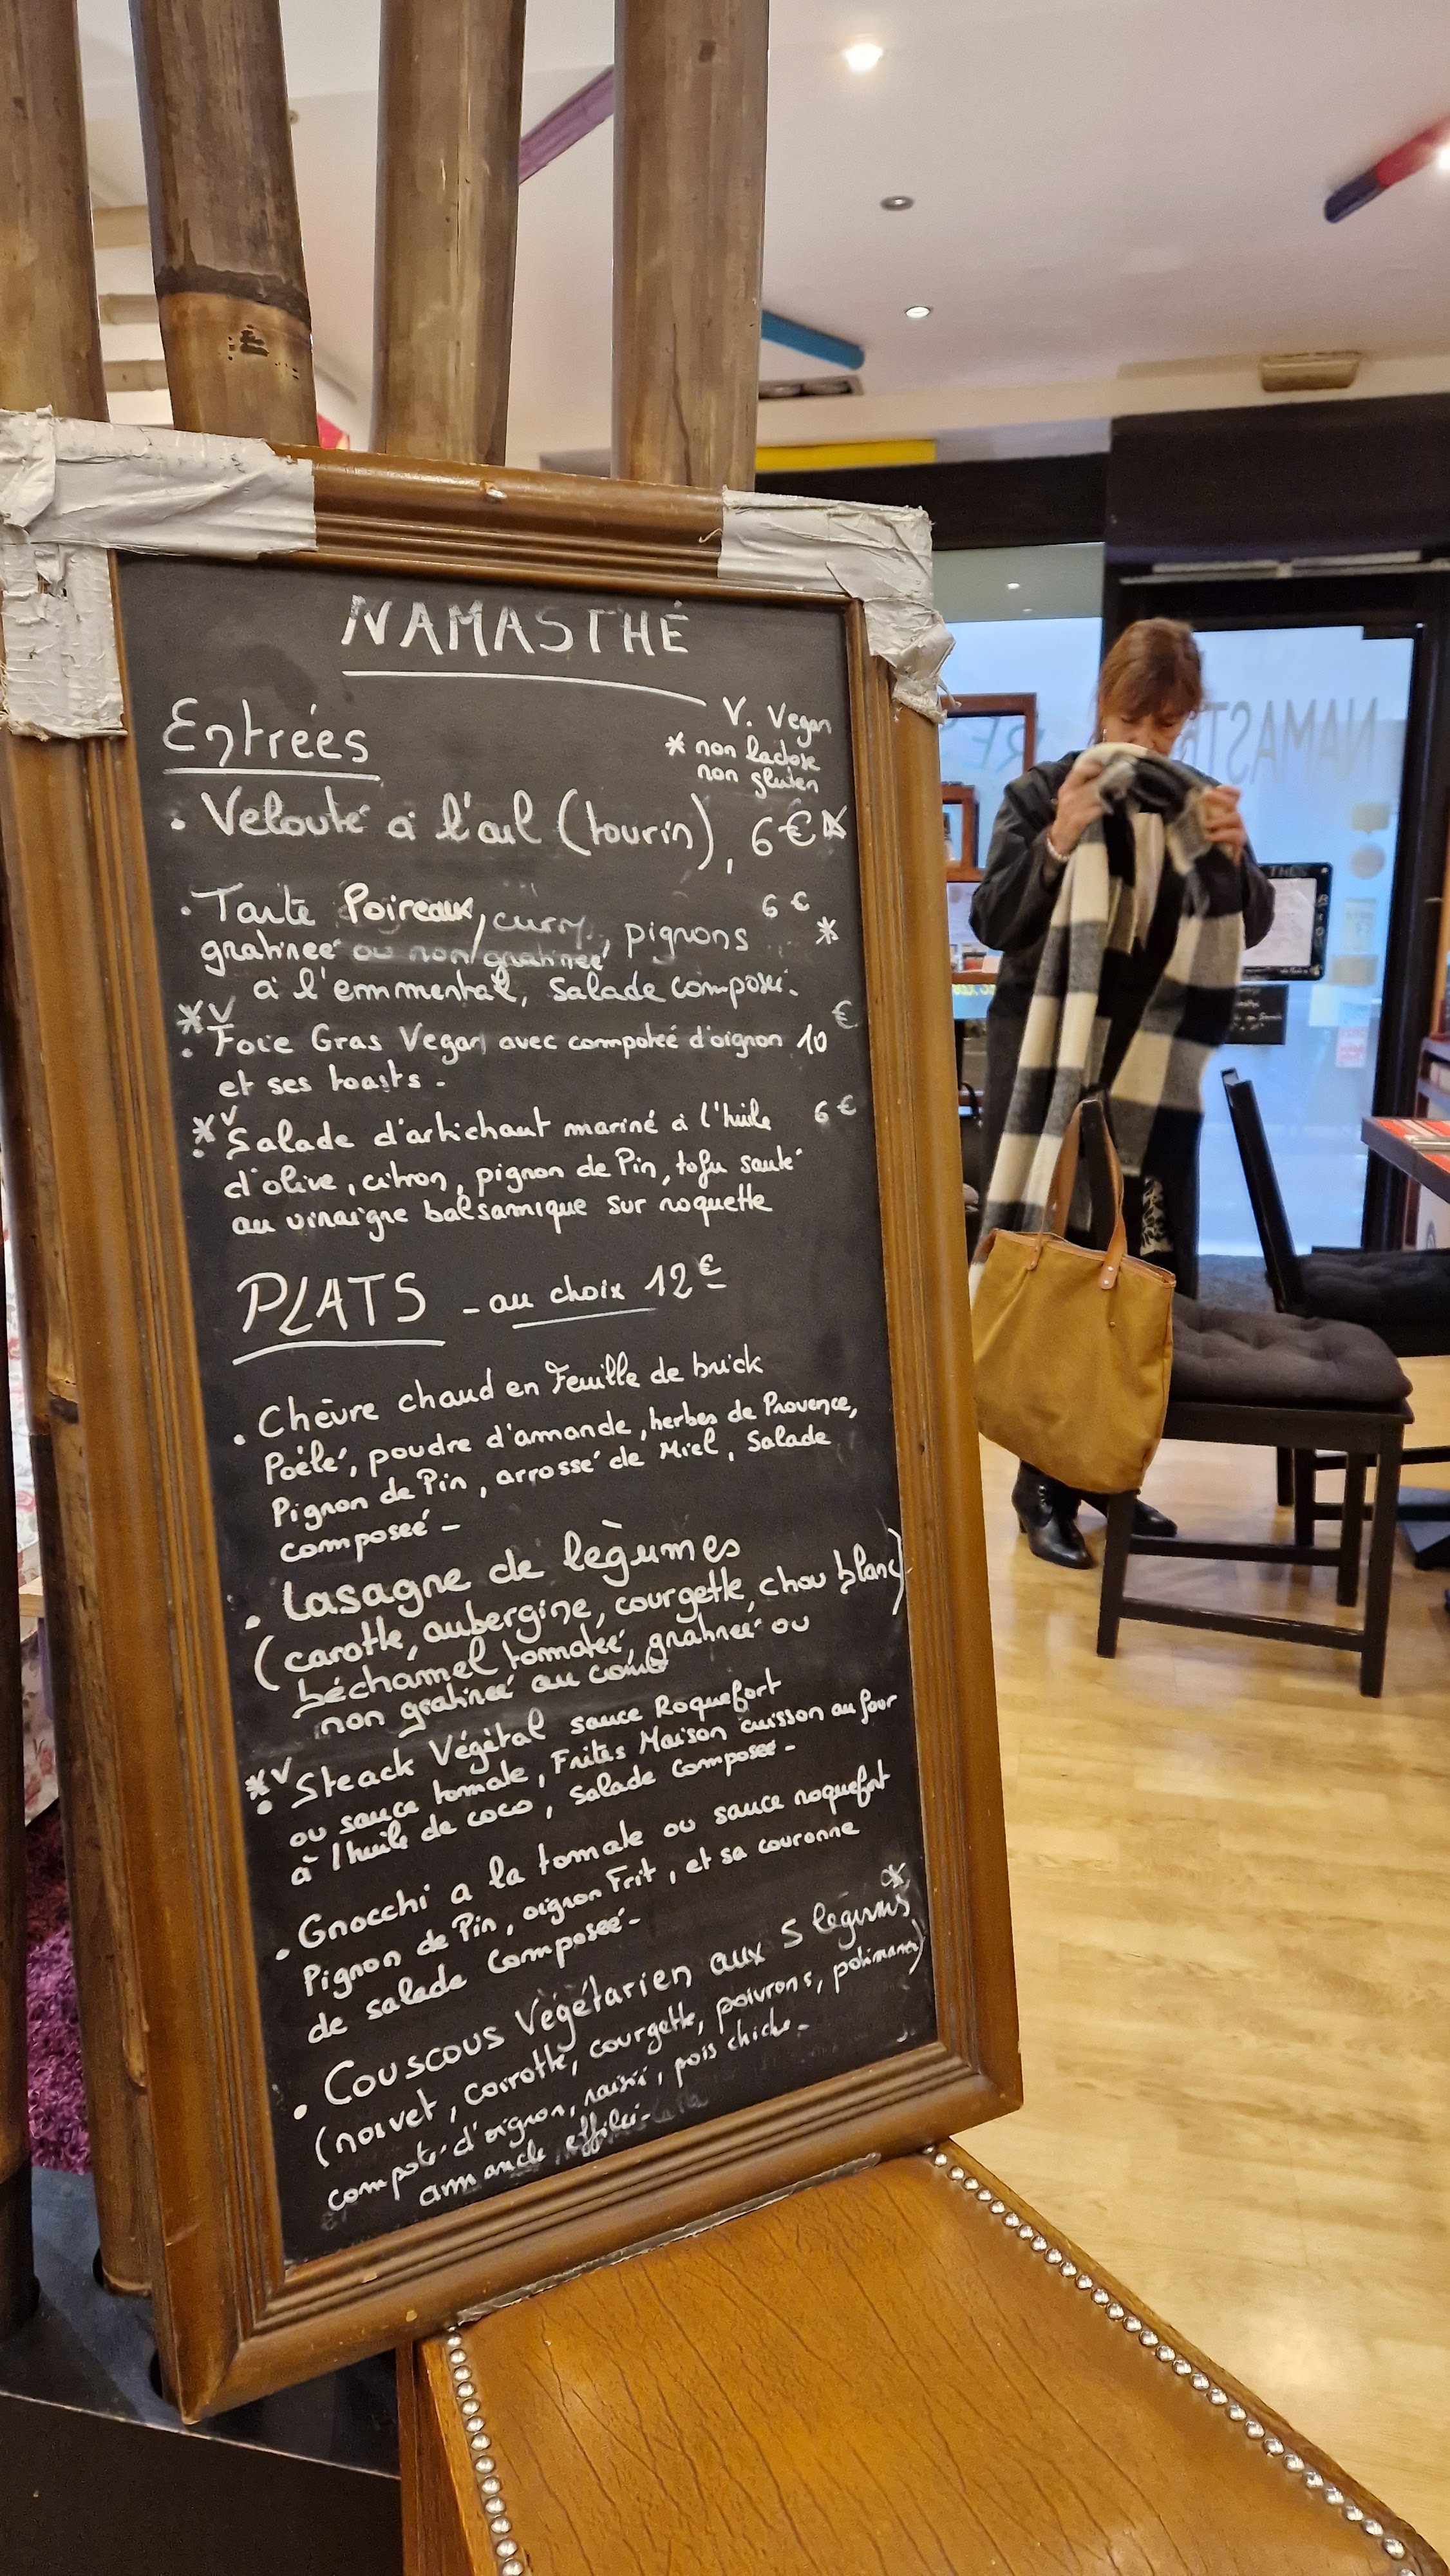 NAMASTHÉ
V. Vegan
* non lactose
non gluten
Entrées
. Velouté à l'ail (tourin), 6€ *
. Tarte Poireaux, curry, pignons 6 € *
gratinée ou non gratinée
à l'emmental, salade composé.
* V
. Foie Gras Vegan avec compotée d'oignon 10 €
et ses toasts -
* V
. Salade d'artichaut mariné à l'huile 6 €
d'olive, citron, pignon de Pin, tofu sauté
au vinaigre balsamique sur roquette
PLATS - au choix 12 €
. Chèvre chaud en Feuille de brick
Poêlé, poudre d'amande, herbes de Provence,
Pignon de Pin, arrossé de Miel, Salade
composeé -
. Lasagne de lègumes
(carotte, aubergine, courgette, chou blanc)
béchamel tomatée, gratineé ou
non gratineé au comté
* V
. Steack Végétal sauce Roquefort
ou sauce tomate, Frites Maison cuisson au four
à l'huile de coco, salade composeé -
. Gnocchi a la tomate ou sauce roquefort
Pignon de Pin, oignon Frit, et sa couronne
de salade composeé -
*
. Couscous Végétarien aux 5 légumes
(navet, carotte, courgette, poivrons, potimarron)
compoté d'oignon, raisin, pois chiche -
amande effilé -
NAMASTH
THÉS